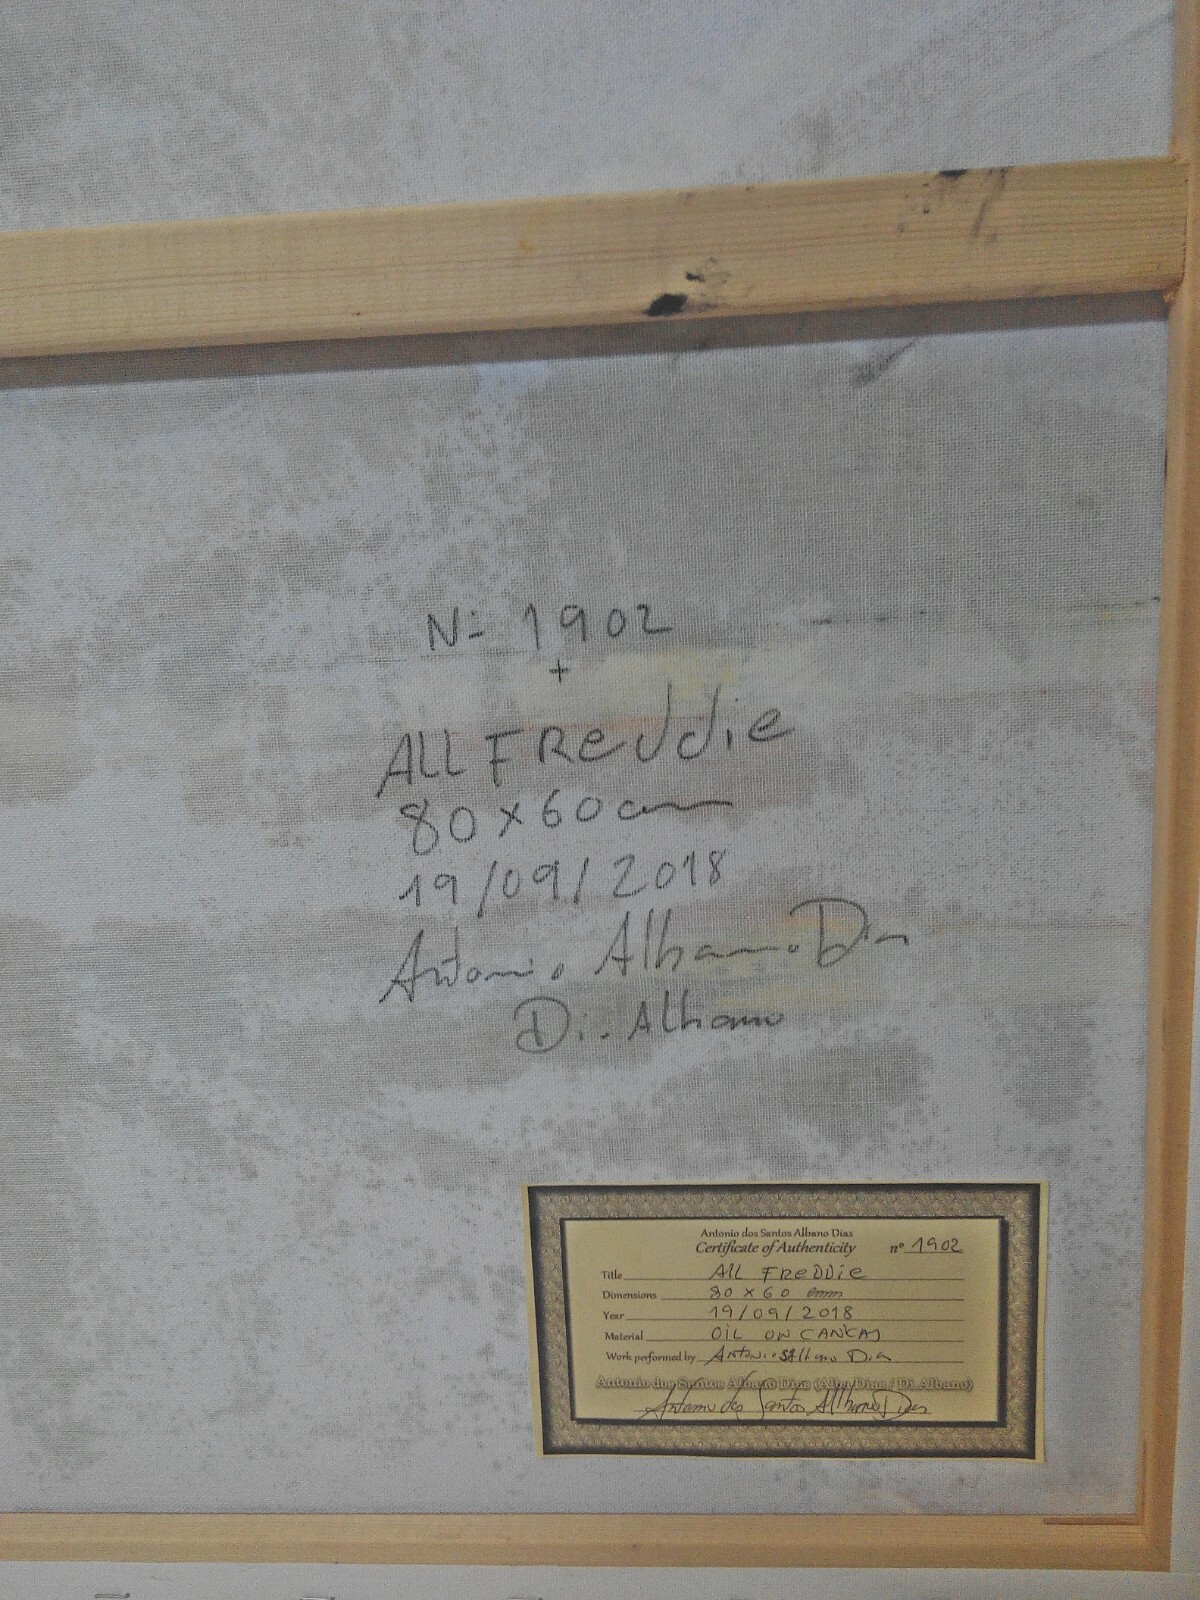 Nº 1902
+
ALL FReddie
80 x 60 cm
19/09/2018
Antonio Albano Dias
Di. Albano
Antonio dos Santos Albano Dias
Certificate of Authenticity nº 1902
Title ALL FReDDie
Dimensions 80 x 60
Year 19/09/2018
Material OIL ON CANVAS
Work performed by Antonio S Albano Dias
Antonio dos Santos Albano Dias (Alba Dias / Di.Albano)
Antonio dos Santos Albano Dias